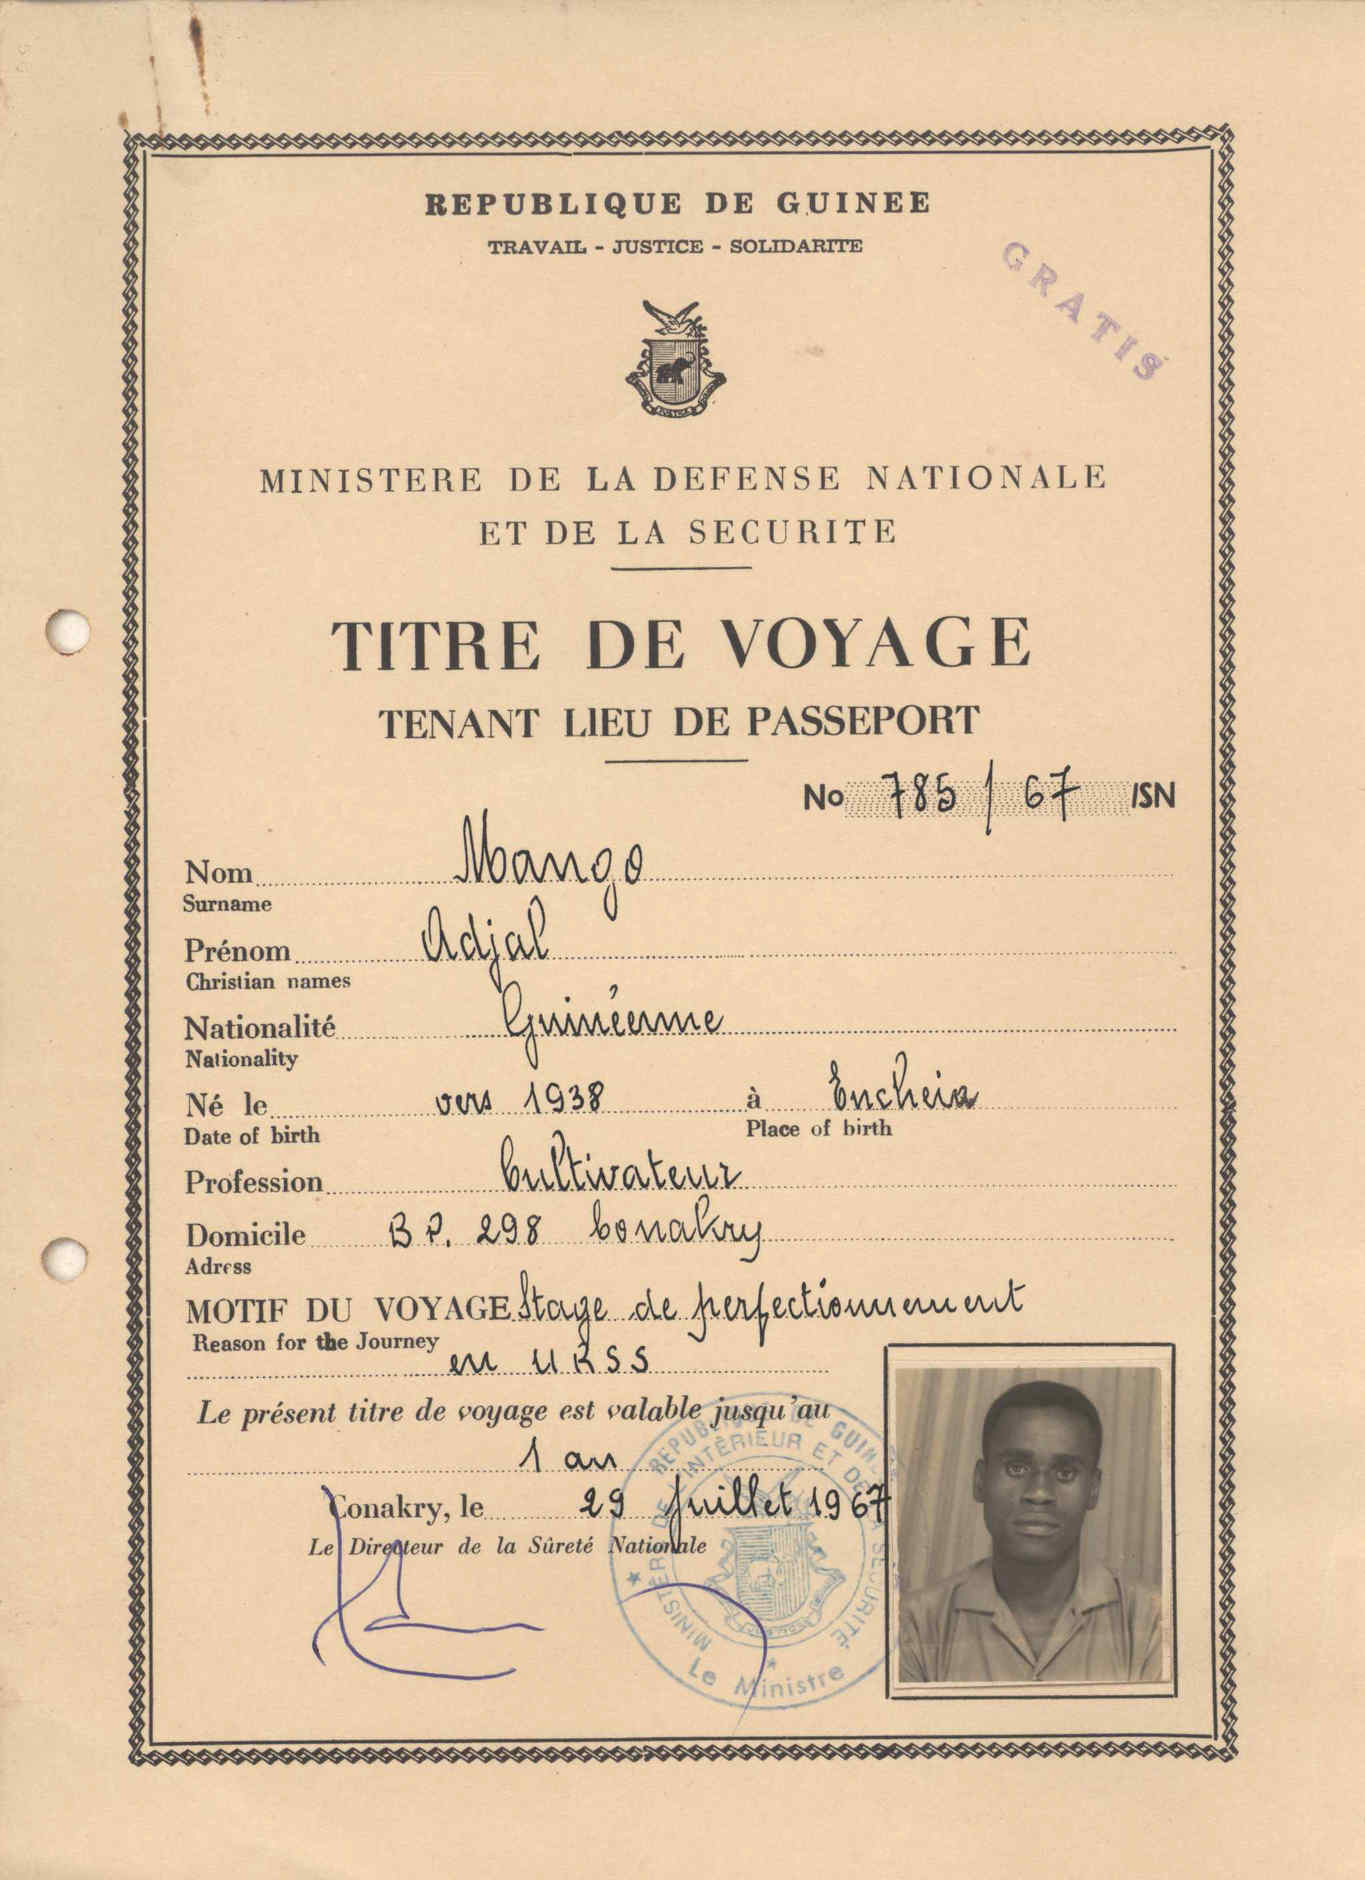 REPUBLIQUE DE GUINEE
TRAVAIL - JUSTICE - SOLIDARITE
GRATIS
MINISTERE DE LA DEFENSE NATIONALE
ET DE LA SECURITE
TITRE DE VOYAGE
TENANT LIEU DE PASSEPORT
No 785 / 67 /SN
Nom Mango
Surname
Prénom Adjal
Christian names
Nationalité Guinéenne
Nationality
Né le vers 1938 à Encheia
Date of birth Place of birth
Profession Cultivateur
Domicile B P. 298 Conakry
Adress
MOTIF DU VOYAGE Stage de perfectionnement
Reason for the Journey
en URSS
Le présent titre de voyage est valable jusqu'au
1 an
Conakry, le 29 Juillet 1967
Le Directeur de la Sûreté Nationale
REPUBLIQUE DE GUINÉE
MINISTÈRE DE L'INTÉRIEUR ET DE LA SÉCURITÉ
Le Ministre